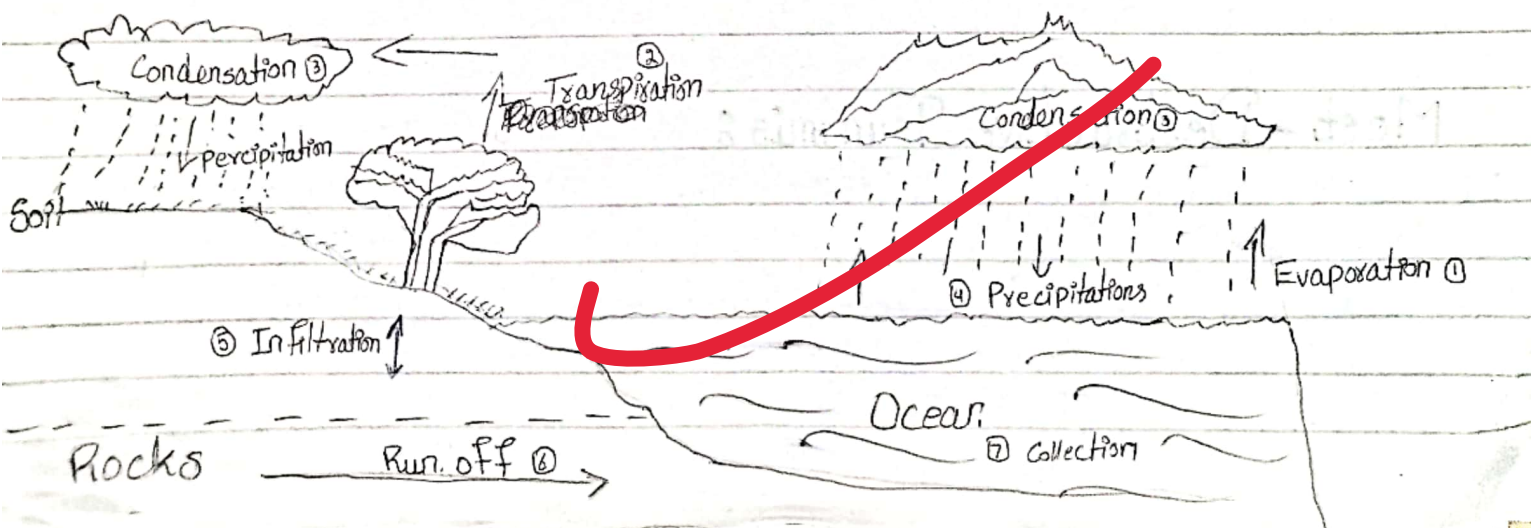 Condensation ③
②
Transpiration
percipitation
Condensation ③
Soil
④ Precipitations
Evaporation ①
⑤ Infiltration
Ocean
⑦ Collection
Rocks
Run.off ⑥